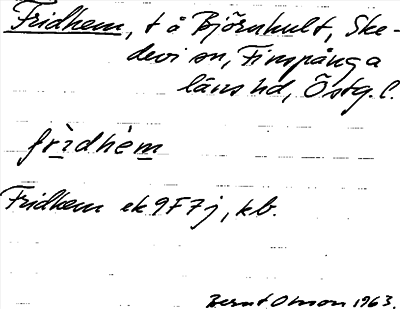 Fridhem, t å Björnhult, Ske-
devi sn, Finspånga
läns hd, Östg. l.
frìdhèm
Fridhem ek 9F7j, kb.
Bernt Olsson 1963.